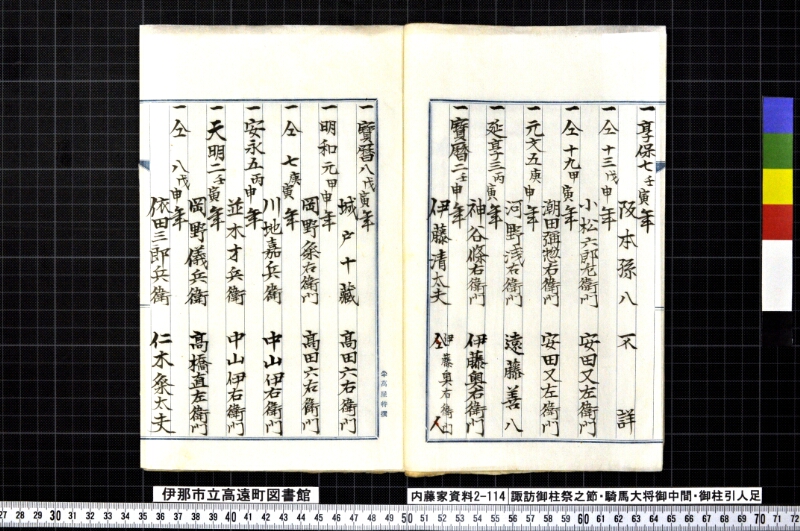 一享保七壬寅年 阪本孫八 不詳
一仝十三戊申年 小松六郎左衛門 安田又左衛門
一仝十九甲寅年 潮田彌惣右衛門 安田又左衛門
一元文五庚申年 河野浅右衛門 遠藤善八
一延享三丙寅年 神谷條右衛門 伊藤奥右衛門
一寳暦二壬申年 伊藤清太夫 伊藤奥右衛門 仝人
一寳暦八戊寅年 城戸十藏 高田六右衛門
一明和元甲申年 岡野粂右衛門 高田六右衛門
一仝七庚寅年 川地嘉兵衛 中山伊右衛門
一安永五丙申年 並木才兵衛 中山伊右衛門
一天明二壬寅年 岡野儀兵衛 高橋直左衛門
一仝八戊申年 依田三郎兵衛 仁木粂太夫
伊那市立高遠町図書館
内藤家資料2-114 諏訪御柱祭之節・騎馬大将御中間・御柱引人足